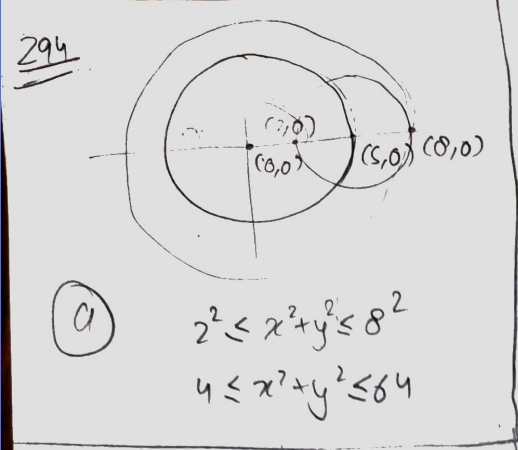 294
(2,0)
(0,0)
(5,0)
(8,0)
a
2² ≤ x²+y² ≤ 8²
4 ≤ x²+y² ≤ 64